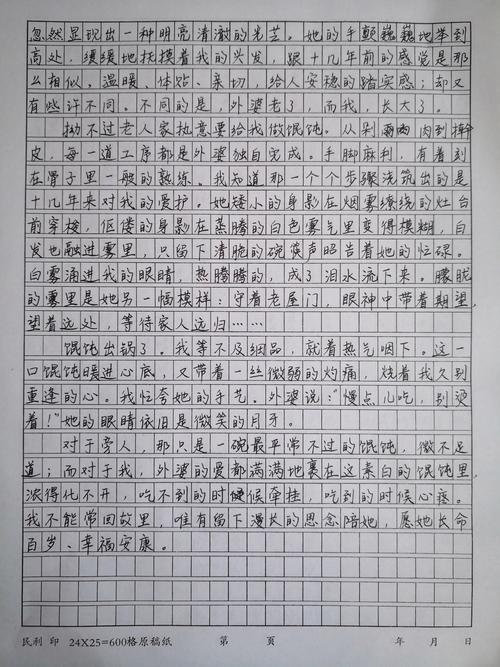 忽然显现出一种明亮清澈的光芒。她的手颤巍巍地举到
高处，缓缓地抚摸着我的头发，跟十几年前的感觉是那
么相似。温暖、体贴、亲切，给人安稳的踏实感；却又
有些许不同。不同的是，外婆老了，而我，长大了。
拗不过老人家执意要给我做馄饨。从剁肉到擀
皮，每一道工序都是外婆独自完成。手脚麻利，有着刻
在骨子里一般的熟练。我知道那一个个步骤浇筑出的是
十几年来对我的爱护。她矮小的身影在烟雾缭绕的灶台
前穿梭，伛偻的身影在蒸腾的白色雾气里变得模糊，白
发也融进雾里，只留下清脆的碗筷声昭告着她的忙碌。
白雾涌进我的眼睛，热腾腾的，成了泪水流下来。朦胧
的雾里是她另一幅模样：守着老屋门，眼神中带着期望，
望着远处，等待家人远归……
馄饨出锅了。我等不及细品，就着热气咽下。这一
口馄饨暖进心底，又带着一丝微弱的灼痛，烧着我久别
重逢的心。我忙夸她的手艺。外婆说：“慢点儿吃，别烫
着！”她的眼睛依旧是微笑的月牙。
对于旁人，那只是一碗最平常不过的馄饨，微不足
道；而对于我，外婆的爱都满满地裹在这素白的馄饨里，
浓得化不开，吃不到的时候牵挂，吃到的时候心疼。
我不能常回故里，唯有留下漫长的思念陪她，愿她长命
百岁、幸福安康。
民利 印 24X25=600格原稿纸 第 页 年 月 日